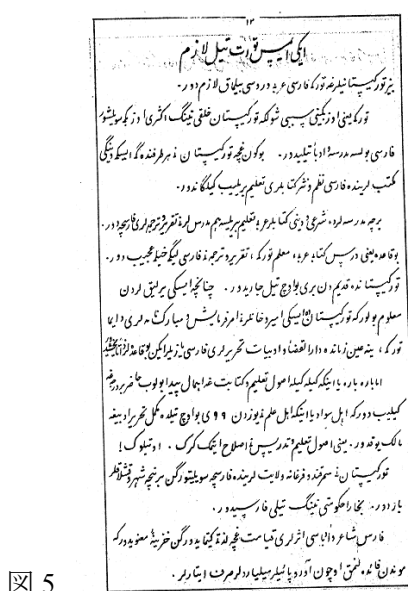 ۱۳
ایکی ایمس تورت تیل لازم
بیز تورکیستانیلرغه تورکی فارسی عربی و روسی بیلماق لازم دور.
تورکی یعنی اوزبکینی سببی شولکه تورکیستان خلقی نینگ اکثری اوزبکی سویلشور
فارسی بولسه مدرسه و ادبأ تیلیدور. بوکون غچه تورکیستان نی هر طرفنده گی ایسکی و ینگی
مکتب لرینده فارسی نظم و نثر کتابلری تعلیم بریلیب کیلگاندور.
برچه مدرسه لرده شرعی و دینی کتابلر عربی تعلیم بریلسه هم مدرس لرنی تقریر و ترجمه لری فارسچه دور.
بو قاعده یعنی درس کتابی عربی، معلم تورکی، تقریر و ترجمه نی فارسی لیگی خیلی عجیب دور.
تورکیستان ده قدیم دن بری بو اوچ تیل جاریدور. چنانچه ایسکی یرلیق لردن
معلوم بولور که تورکیستان نی ایسکی امیر و خانلرینی امر فرمایش و مبارک نامه لری دایما
تورکی، ینه عین زمانده دارالقضأ و ادبیات تحریرلری فارسی یازیلر ایکن
اما باره باره یا اینکه کیله کیله اصول تعلیم و کتابت غه اجمال پیدا بولوب حاضر بر درجه غه
کیلیب دور که اهل سواد یا اینکه اهل علم نی یوزدن ۹۹ ی بو اوچ تیلده مکمل تحریر ادبیغه
مالک یوقدور. یعنی اصول تعلیم و تدریس نی اصلاح ایتمک کرک.
تورکیستان نی سمرقند و فرغانه ولایت لرینده فارسچه سویلیتورگن برنیچه شهر و قشلاقلر
باردور. بخارا حکومتی نینگ تیلی فارسیدور.
فارس شاعر و ادباسی اثرلری قیامت غچه لذتی کیتمایدورگن خزینهٔ معنویدر که
موندن فائده لنمق اوچون آوروپالیلر میلیاردلر صرف ایتارلر.
図 5